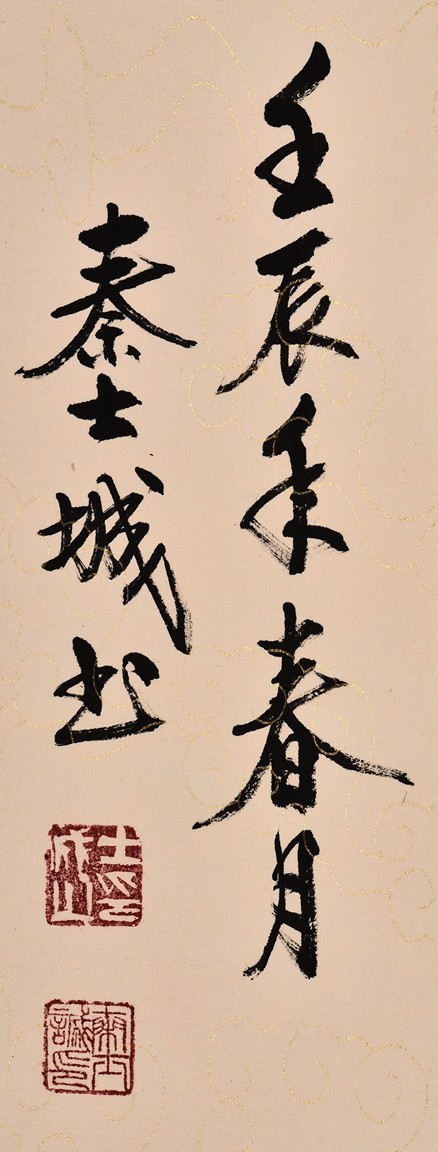 壬辰年春月
秦士城书